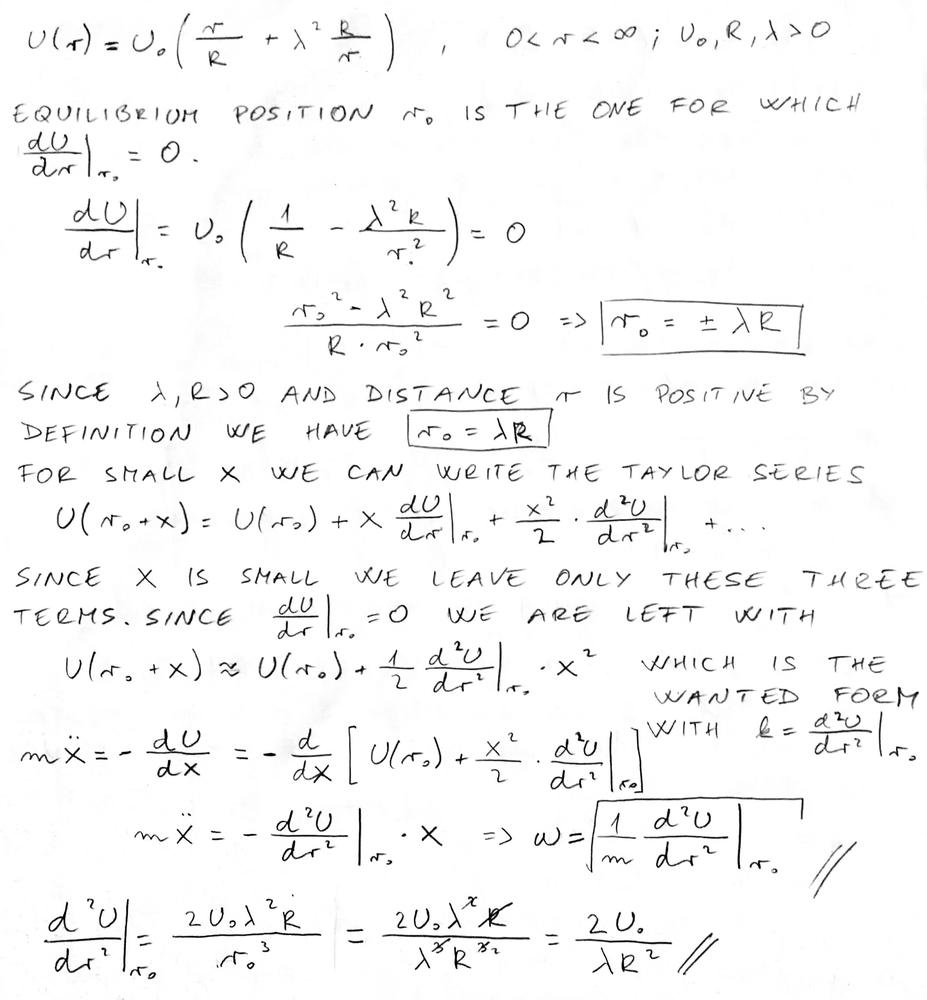 U(r) = U₀ ( r/R + λ² R/r ) , 0 < r < ∞ ; U₀, R, λ > 0
EQUILIBRIUM POSITION r₀ IS THE ONE FOR WHICH
dU/dr|r₀ = 0.
dU/dr|r₀ = U₀ ( 1/R - λ²R/r₀² ) = 0
(r₀² - λ²R²)/(R · r₀²) = 0 => r₀ = ± λR
SINCE λ, R > 0 AND DISTANCE r IS POSITIVE BY
DEFINITION WE HAVE r₀ = λR
FOR SMALL X WE CAN WRITE THE TAYLOR SERIES
U(r₀ + x) = U(r₀) + x dU/dr|r₀ + x²/2 · d²U/dr²|r₀ + ...
SINCE X IS SMALL WE LEAVE ONLY THESE THREE
TERMS. SINCE dU/dr|r₀ = 0 WE ARE LEFT WITH
U(r₀ + x) ≈ U(r₀) + 1/2 d²U/dr²|r₀ · x² WHICH IS THE
WANTED FORM
WITH k = d²U/dr²|r₀
mẍ = - dU/dx = - d/dx [ U(r₀) + x²/2 · d²U/dr²|r₀ ]
mẍ = - d²U/dr²|r₀ · x => ω = √(1/m d²U/dr²|r₀) //
d²U/dr²|r₀ = 2U₀λ²R/r₀³ = 2U₀λ²R/λ³R³² = 2U₀/λR² //